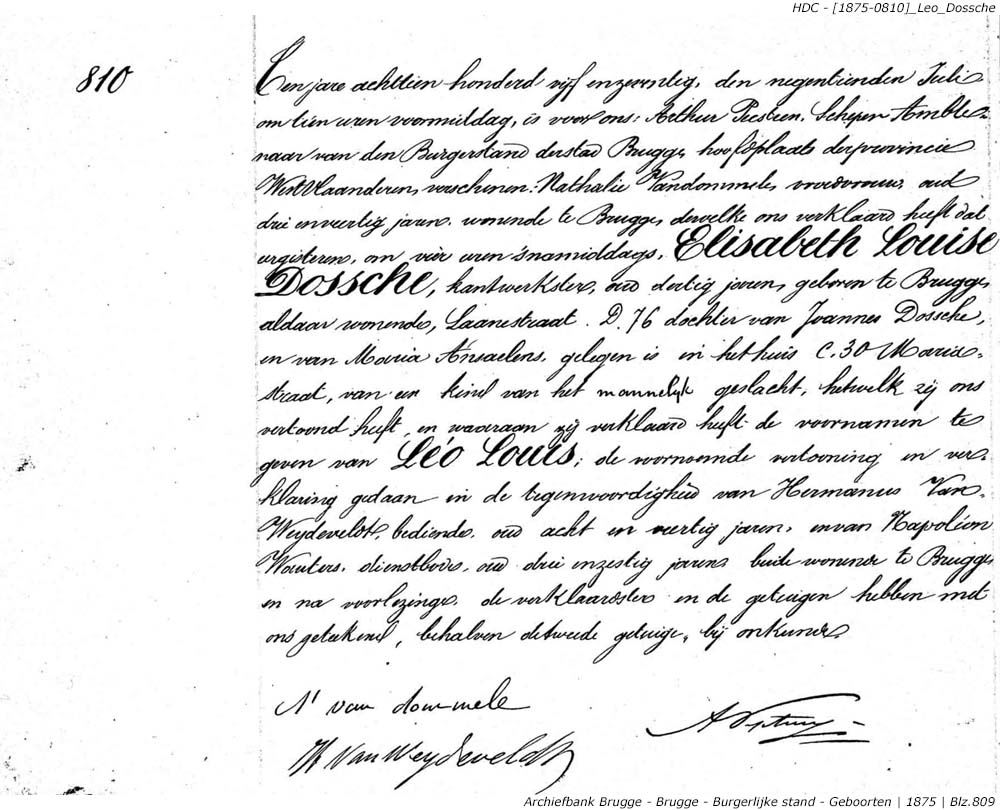 HDC - [1875-0810]_Leo_Dossche
810
Ten jare achttien honderd vijf en zeventig, den negentienden Juli
om tien uren voormiddag, is voor ons: Arthur Schepen Ambte-
naar van den Burgerstand der stad Brugge, hoofdplaats der provincie
WestVlaanderen, verschenen: Nathalie Vandommele, vroedvrouw, oud
drie en veertig jaren, wonende te Brugge, dewelke ons verklaard heeft dat
eergisteren, om vier uren 's namiddags, Elisabeth Louise
Dossche, kantwerkster, oud dertig jaren, geboren te Brugge,
aldaar wonende, Laanestraat. D. 76 dochter van Joannes Dossche,
en van Maria Ansaelens, gelegen is in het huis C. 30 Maria-
straat, van een kind van het mannelijk geslacht, hetwelk zij ons
vertoond heeft, en waaraan zij verklaard heeft de voornamen te
geven van Léo Louis; de voornoemde vertooning en ver-
klaring gedaan in de tegenwoordigheid van Hermanus Van-
Weydeveldt, bediende, oud acht en veertig jaren, en van Napoléon
Wouters, dienstbode, oud drie en zestig jaren, beide wonende te Brugge,
en na voorlezinge, de verklaardster en de getuigen hebben met
ons geteekend, behalven de tweede getuige, bij onkunde
N van dommele
H VanWeydeveldt
Archiefbank Brugge - Brugge - Burgerlijke stand - Geboorten | 1875 | Blz.809